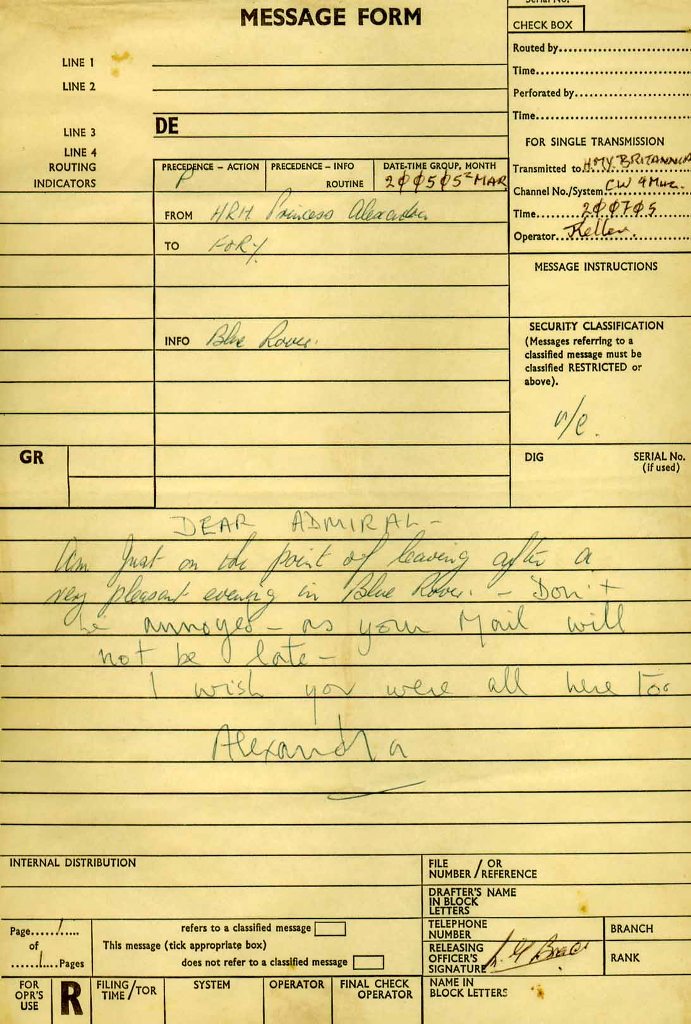 MESSAGE FORM
Serial No.
CHECK BOX
Routed by
Time
Perforated by
Time
LINE 1
LINE 2
LINE 3
DE
LINE 4
ROUTING
INDICATORS
FOR SINGLE TRANSMISSION
Transmitted to HMY. BRITANNIA
Channel No./System CW 4MHz.
Time 200705
Operator
PRECEDENCE – ACTION
P
PRECEDENCE – INFO
ROUTINE
DATE-TIME GROUP, MONTH
200505Z MAR
FROM HRH Princess Alexandra
TO FORY
INFO Blue Rover.
MESSAGE INSTRUCTIONS
SECURITY CLASSIFICATION
(Messages referring to a
classified message must be
classified RESTRICTED or
above).
u/c.
GR
DIG
SERIAL No.
(if used)
DEAR ADMIRAL –
Am Just on the point of leaving after a
very pleasant evening in Blue Rover. – Don't
be annoyed – as your Mail will
not be late –
I wish you were all here Too
Alexandra
INTERNAL DISTRIBUTION
FILE / OR
NUMBER / REFERENCE
DRAFTER'S NAME
IN BLOCK
LETTERS
Page 1
of
1 Pages
refers to a classified message
This message (tick appropriate box)
does not refer to a classified message
TELEPHONE
NUMBER
BRANCH
RELEASING
OFFICER'S
SIGNATURE
RANK
FOR
OPR'S
USE
R
FILING / TOR
TIME
SYSTEM
OPERATOR
FINAL CHECK
OPERATOR
NAME IN
BLOCK LETTERS